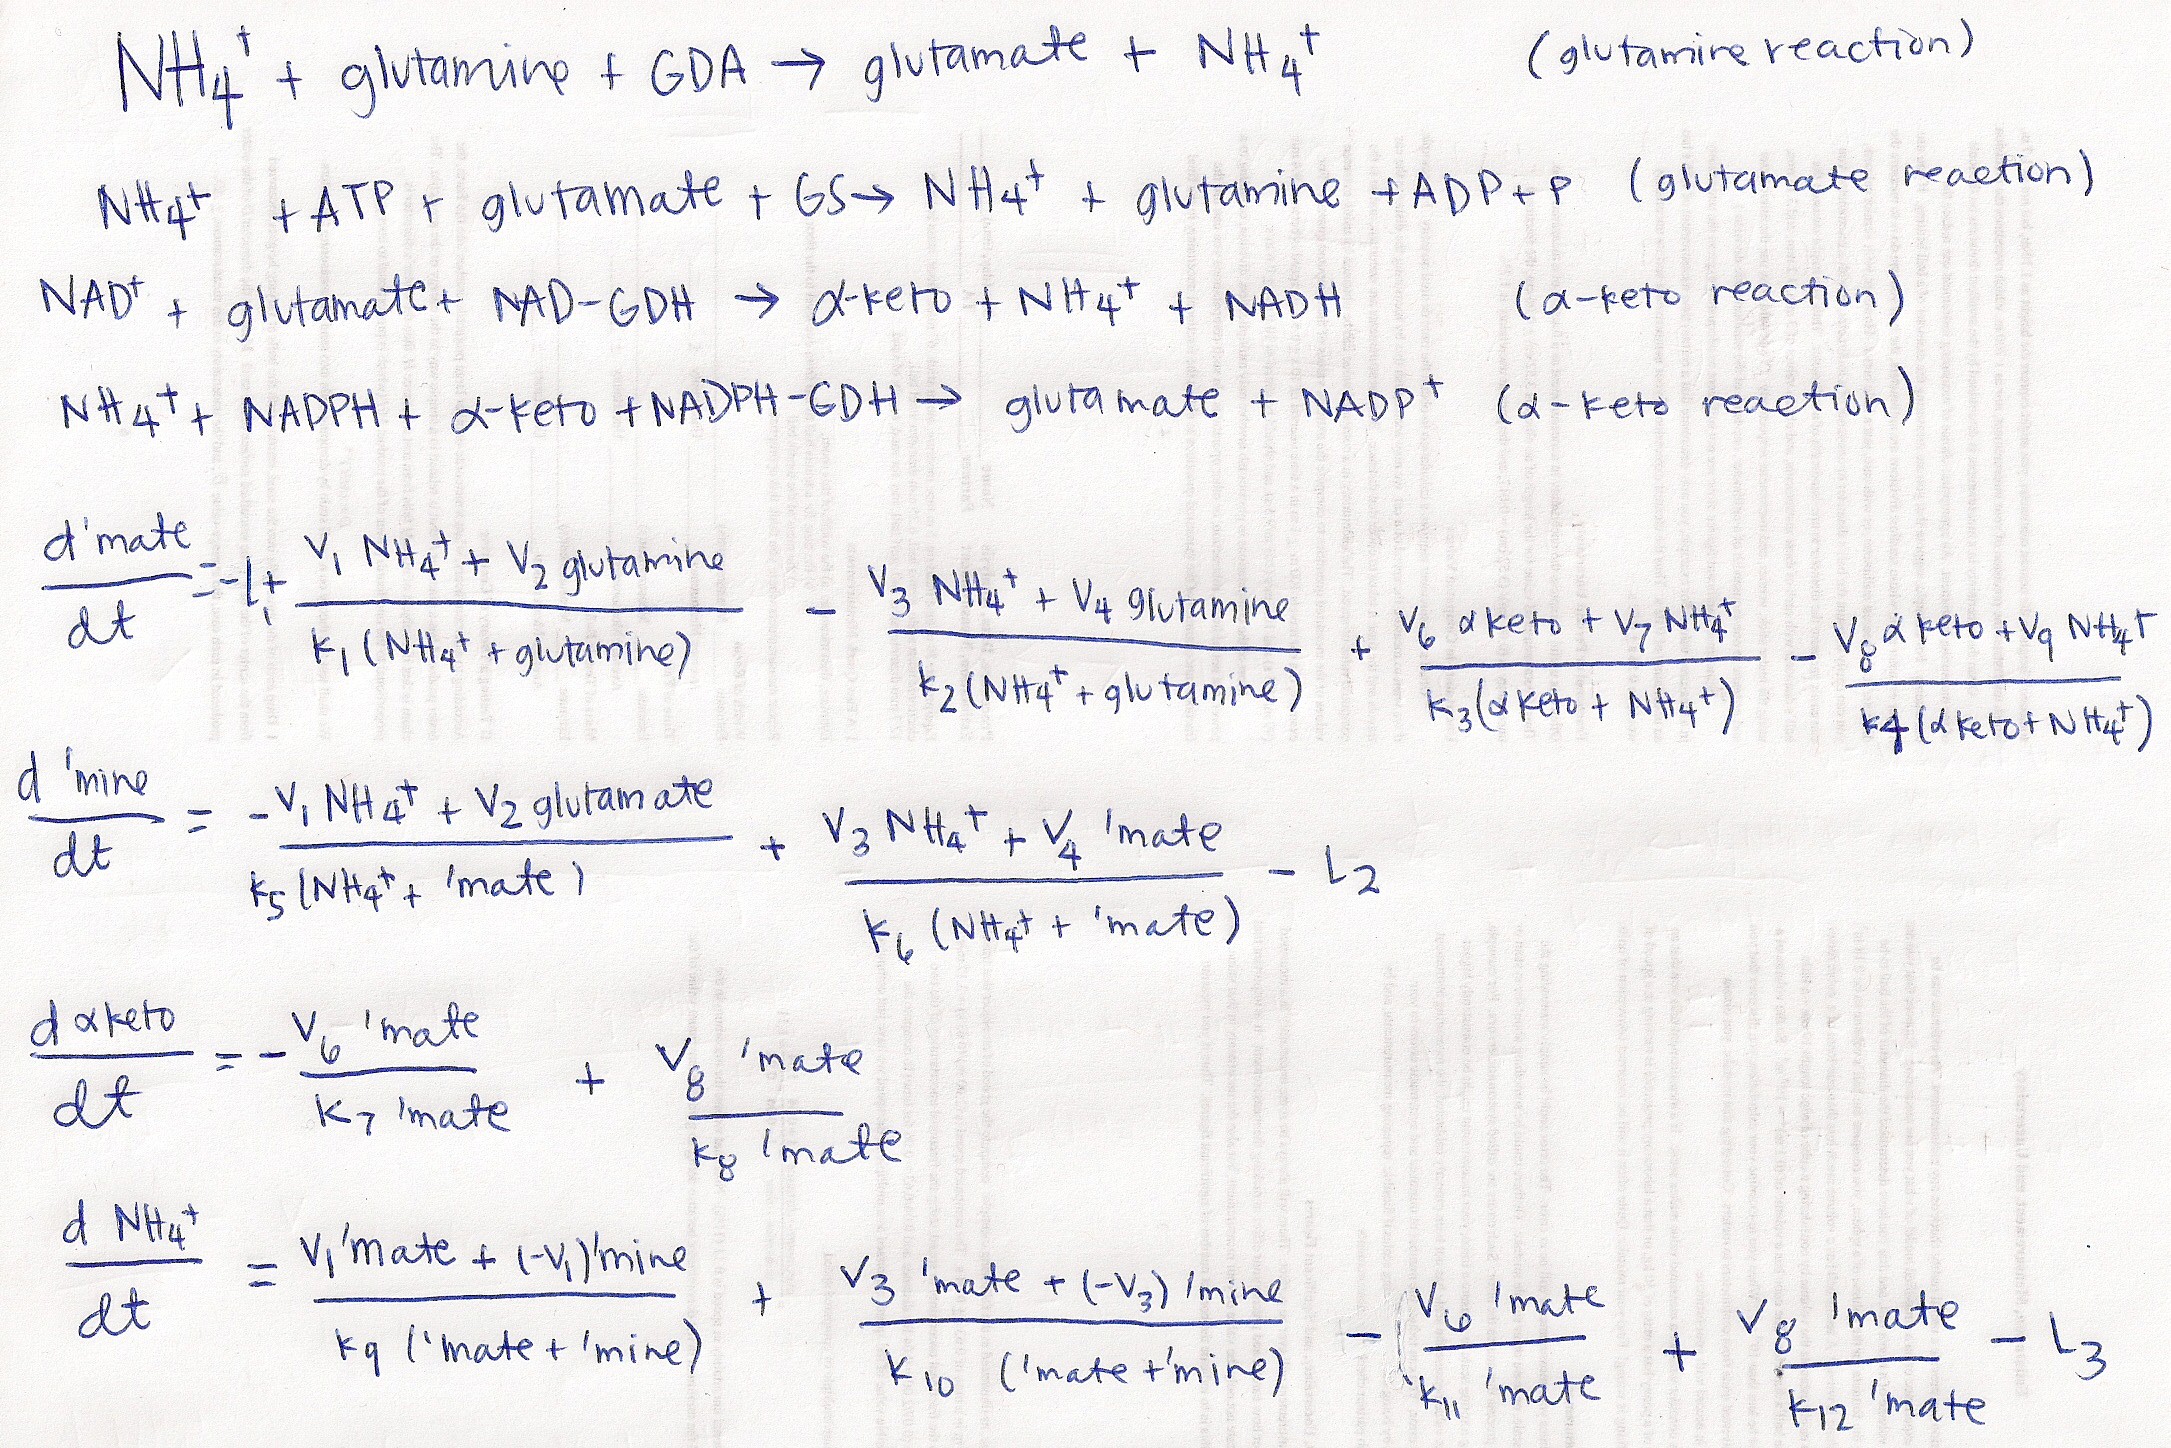 NH₄⁺ + glutamine + GDA → glutamate + NH₄⁺ (glutamine reaction)
NH₄⁺ + ATP + glutamate + GS → NH₄⁺ + glutamine + ADP + P (glutamate reaction)
NAD⁺ + glutamate + NAD-GDH → α-keto + NH₄⁺ + NADH (α-keto reaction)
NH₄⁺ + NADPH + α-keto + NADPH-GDH → glutamate + NADP⁺ (α-keto reaction)
d'mate/dt = -L₁ + (V₁ NH₄⁺ + V₂ glutamine)/(K₁ (NH₄⁺ + glutamine)) - (V₃ NH₄⁺ + V₄ glutamine)/(K₂ (NH₄⁺ + glutamine)) + (V₆ αketo + V₇ NH₄⁺)/(K₃ (αketo + NH₄⁺)) - (V₈ αketo + V₉ NH₄⁺)/(K₄ (αketo + NH₄⁺))
d'mine/dt = (-V₁ NH₄⁺ + V₂ glutamate)/(K₅ (NH₄⁺ + 'mate)) + (V₃ NH₄⁺ + V₄ 'mate)/(K₆ (NH₄⁺ + 'mate)) - L₂
dαketo/dt = - (V₆ 'mate)/(K₇ 'mate) + (V₈ 'mate)/(K₈ 'mate)
d NH₄⁺/dt = (V₁ 'mate + (-V₁) 'mine)/(K₉ ('mate + 'mine)) + (V₃ 'mate + (-V₃) 'mine)/(K₁₀ ('mate + 'mine)) - (V₆ 'mate)/(K₁₁ 'mate) + (V₈ 'mate)/(K₁₂ 'mate) - L₃